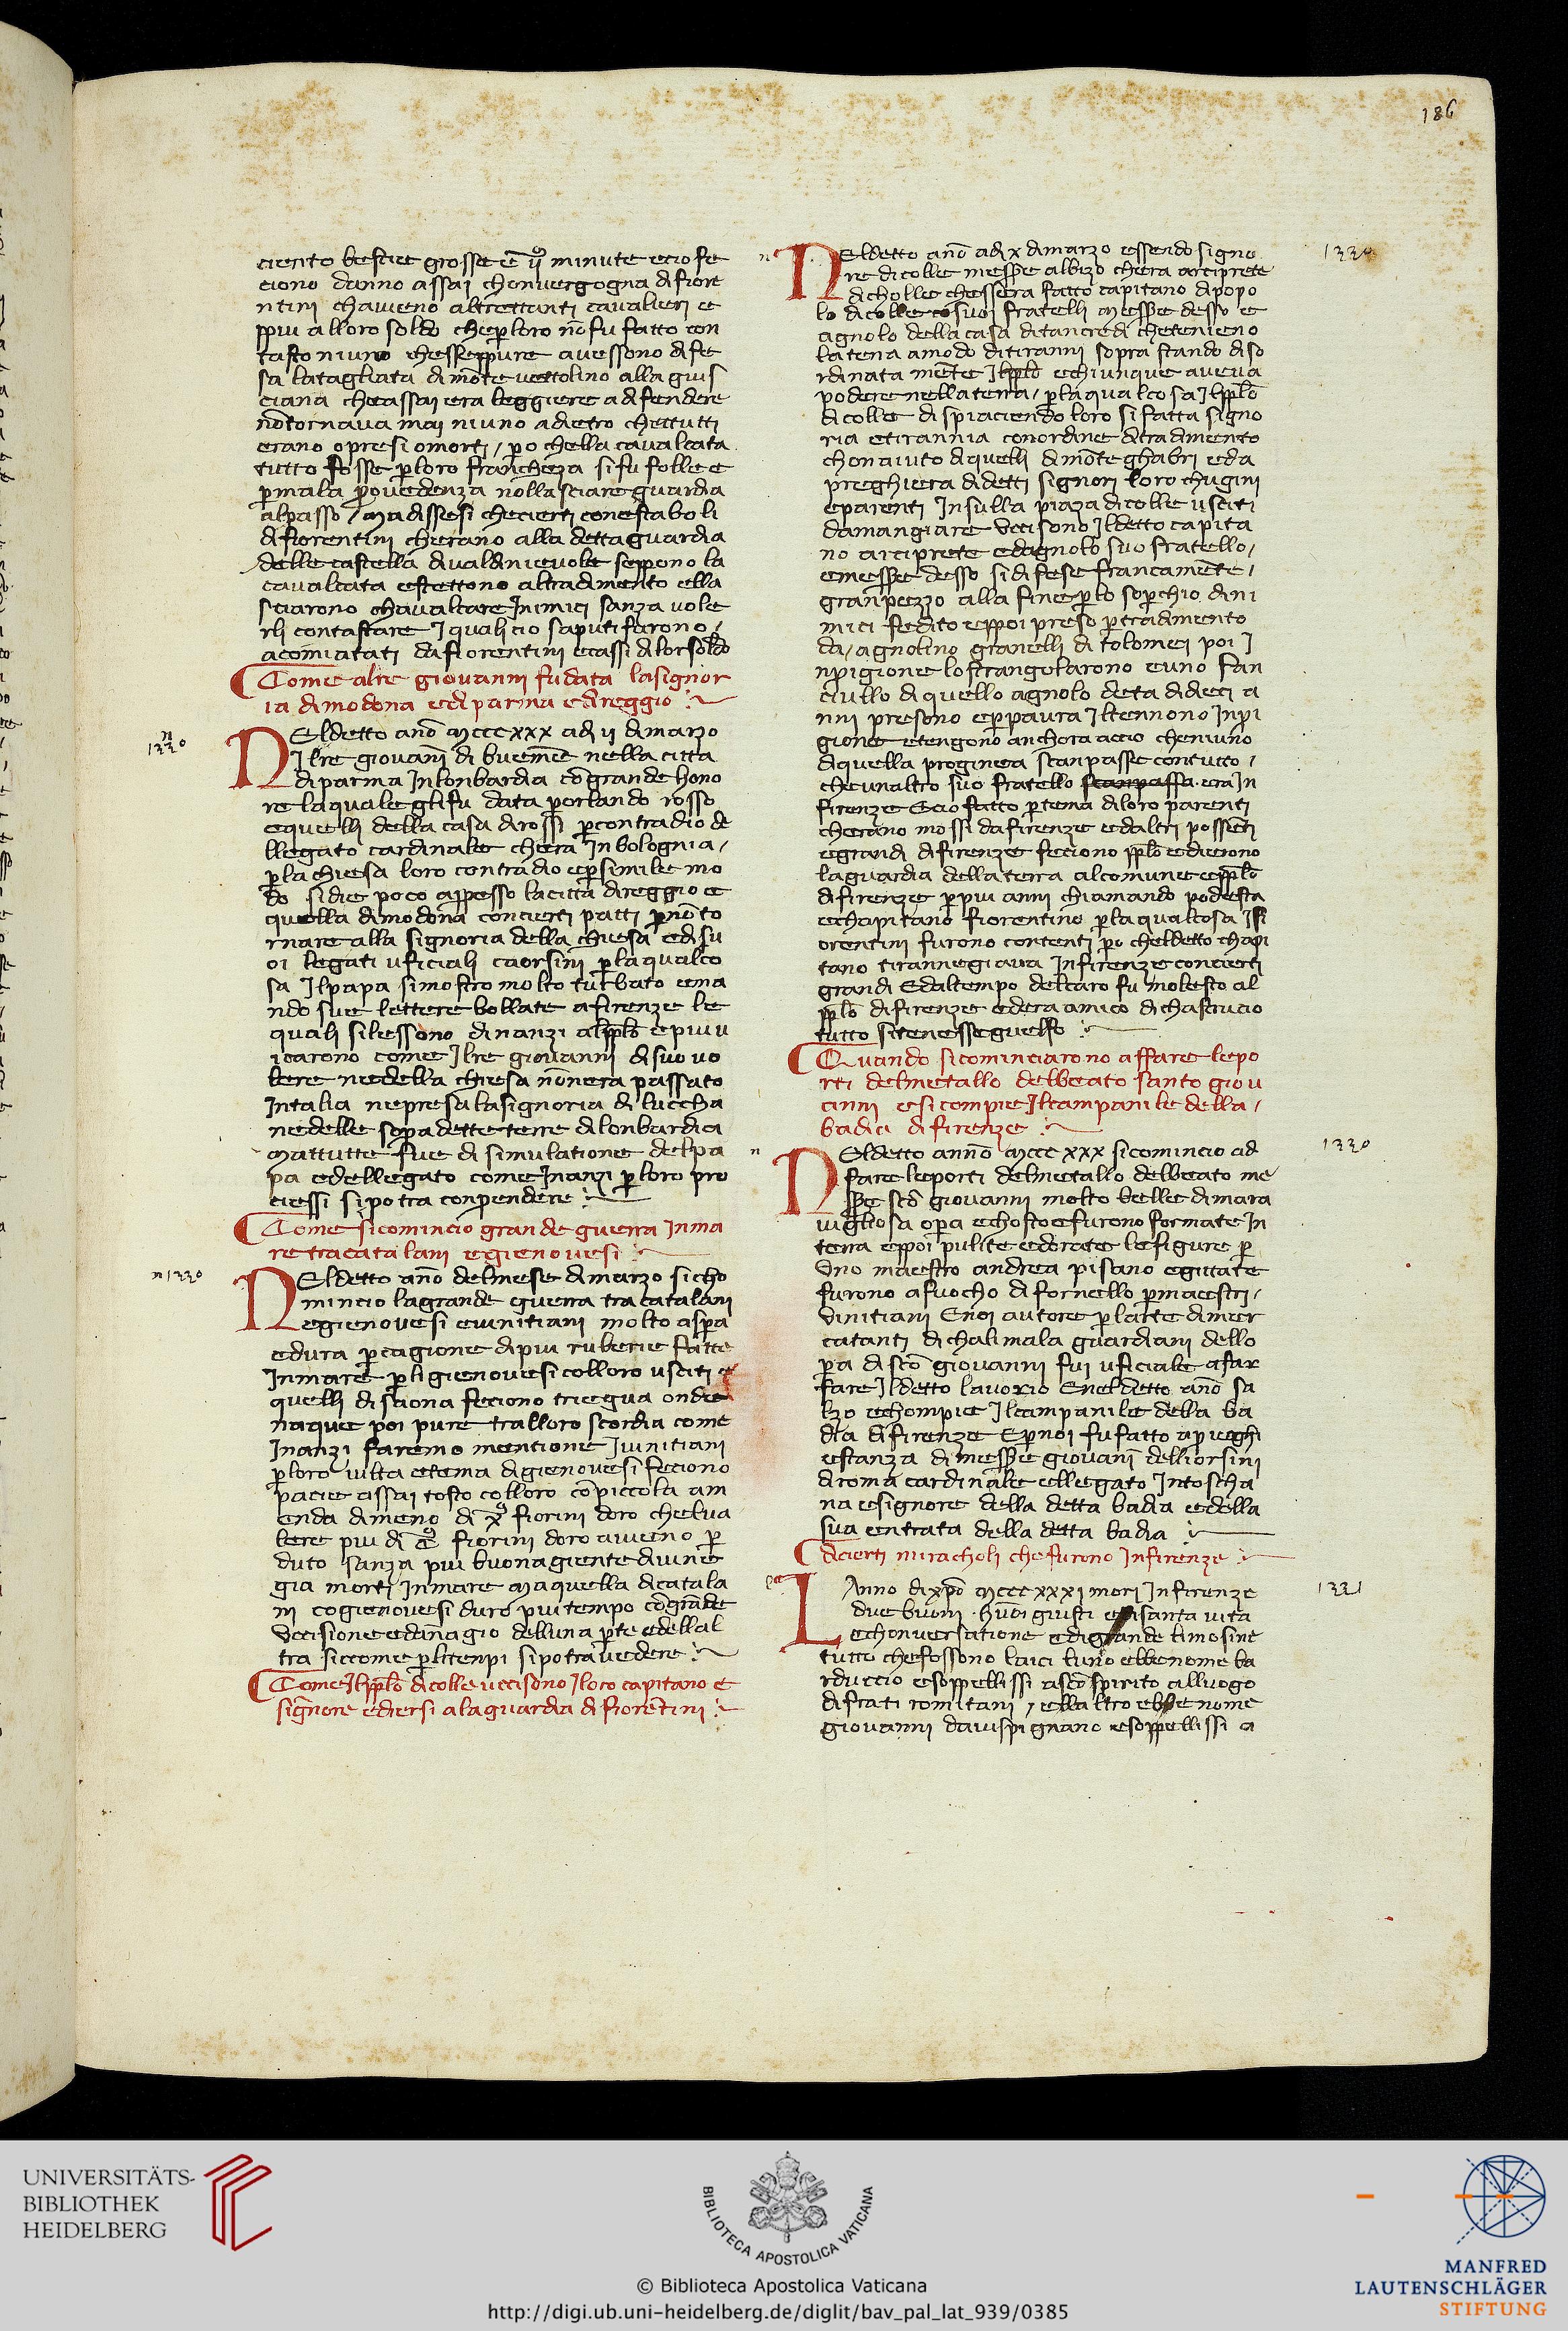 186
ciento bestie grosse e̅ ij minute ecio fe
ciono danno assai chonvergogna difiore
ntini chaveno altrettanti cavalieri e
ppiu alloro soldo cheꝑloro no̅fu fatto con
tasto niuno chesseppure avessono dife
sa latagliata dimo̅te vettolino alla guis
ciana cheassai era leggiere adifendere
no̅tornava mai niuno adietro chettutti
erano opresi omorti / ꝑo chella cavalcata
tutto fosse ꝑloro franchezza sifu folle e
ꝑmala ꝓvedenza nollasciare guardia
alpasso / Madissesi checierti conestaboli
difiorentini cherano alla detta guardia
delle castella divaldinievole seppono la
cavalcata estettono altradimento ella
sciarono chavalcare Inimici sanza vole
rli contastare Iquali cio saputi furono /
acomiatati dafiorentini ecassi dilorsoldo
Come alre giovanni fudata lasignor
ia dimodona edi parma edireggio
n
1330
Neldetto an̅o Mcccxxx adi ij dimarzo
Ilre giovan̅i di buem̅e nella citta
diparma Inlonbardia co̅grande hono
re laquale glifu data ꝑorlando rosso
equelli della casa dirossi ꝑcontradio de
llegato cardinale chera Inbolognia /
ꝑla chiesa loro contradio eꝑsimile mo
do sidie poco appresso lacitta direggio e
quella dimodona concierti patti ꝑno̅to
rnare alla signoria della chiesa edisu
oi legati uficiali caorsini ꝑlaqualco
sa Ilpapa simostro molto turbato ema
ndo sue lettere bollate afirenze le
quali silessono dinanzi alpplo̅ epiuu
icarono come Ilre giovanni disuo uo
lere nedella chiesa no̅nera passato
Intalia nepresa lasignoria di luccha
nedelle sopra dette terre dilonbardia
Mattutte fue di simulatione delpa
pa edellegato come Inanzi ꝑloro pro
ciessi sipotra conprendere
Come sicomincio grande guerra Inma
re tracatalani egienovesi
n 1330
Neldetto an̅o delmese dimarzo sicho
mincio lagrande guerra tra catalani
egienovesi evinitiani molto aspra
edura ꝑcagione dipiu ruberie fatte
Inmare ꝑligienovesi colloro usciti e
quelli disaona feciono triegua onde
naque poi pure tralloro scordia come
Inanzi faremo mentione Ivinitiani
ꝑloro vilta etema digienovesi feciono
pacie assai tosto colloro co̅piccola am
enda dimeno di x̊ fiorini doro cheva
lere piu di c̊ fiorini doro aveeno ꝑ
duto sanza piu buonagiente divine
gia morti Inmare Maquella dicatala
ni cogienovesi duro piu tempo co̅grande
uccisione edan̅agio dellun̅a ꝑte edellal
tra siccome ꝑlitenpi sipotra vedere
Come Ilpplo̅ dicolle uccisono Iloro capitano e
signore ediersi alaguardia difiorentini
n
1330
Neldetto an̅o adi x dimarzo essendo signo
re dicolle messere albizo chera arciprete
dicholle chessera fatto capitano dipopo
lo dicolle cosuoi fratelli Messere desso e
agnolo della casa ditancredi chetenieno
laterra amodo ditiranni soprastando diso
rdinatamente Ilpplo̅ echiunque aveva
podere nella terra / ꝑla qualcosa Ilpplo̅
dicolle dispiaciendo loro sifatta signo
ria etirannia conordine ditradimento
chonaiuto diquelli dimo̅teghabri eda
preghiera didetti signori loro chugini
eparenti Insulla piaza dicolle usciti
damangiare uccisono Ildetto capita
no arciprete edagnolo suo fratello /
emessere desso sidifese francamente /
granpezzo alla fine ꝑlo soꝑchio dini
mici fedito eppoi preso ꝑtradimento
da / agnolino granelli di tolomei poi I
nprigione lostrangolarono euno fan
ciullo di quello agnolo deta didieci a
nni presono eꝑpaura Iltennono Inpri
gione etengono anchora accio cheniuno
diquella proginea scanpasse contutto /
cheunaltro suo fratello scanpassa era In
firenze Ecio fatto ꝑtema diloro parenti
cherano mossi dafirenze edaltri possenti
egrandi difirenze feciono pplo̅ edierono
laguardia della terra alcomune epplo̅
difirenze ꝑpiu anni chiamando podesta
echapitano fiorentino ꝑlaqualcosa Ifi
orentini furono contenti ꝑo cheldetto chapi
tano tirannegiava Infirenze concierti
grandi Edaltempo delcaro fu molesto al
pplo̅ difirenze edera amico dichastrucio
tutto sitenesse guelfo
Quando sicominciarono affare lepo
rti delmetallo delbeato santo giou
anni esicompie Ilcampanile della /
badia difirenze
n
1330
Neldetto anno Mcccxxx sicomincio ad
fare leporti delmetallo delbeato me
ssere sco̅ giovanni molto belle dimara
vigliosa opera echosto efurono formate In
terra eppoi pulite edorate lefigure ꝑ
uno maestro andrea pisano egittate
furono afuocho difornello ꝑmaestri /
viniitiani Enoi autore ꝑlarte dimer
catanti dichalimala guardiani dello
pera di sco̅ giovanni fui uficiale afar
fare Ildetto lavorio Eneldetto an̅o sa
lzo echompie Ilcampanile della ba
dia difirenze Eꝑnoi fu fatto apreghi
estanza dimessere giovan̅i delliorsini
diroma cardinale ellegato Intoscha
na esignore della detta badia edella
sua entrata della detta badia
dicierti miracholi chefurono Infirenze
1331
Lanno dixpo̅ Mcccxxxi mori Infirenze
due buoni huo̅i giusti edisanta vita
echonversatione edigrande limosine
tutto chefossono laici luno ebbenome ba
rduccio esoppellissi asco̅ spirito alluogo
difrati romitani / ellaltro ebbe nome
giovanni davispignano esoppellissi a
UNIVERSITÄTS-
BIBLIOTHEK
HEIDELBERG
BIBLIOTECA APOSTOLICA VATICANA
© Biblioteca Apostolica Vaticana
http://digi.ub.uni-heidelberg.de/diglit/bav_pal_lat_939/0385
MANFRED
LAUTENSCHLÄGER
STIFTUNG